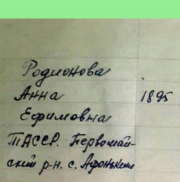 Родионова
Анна 1895
Ефимовна
ТАССР. Первомай-
ский р-н. с. Афонькино